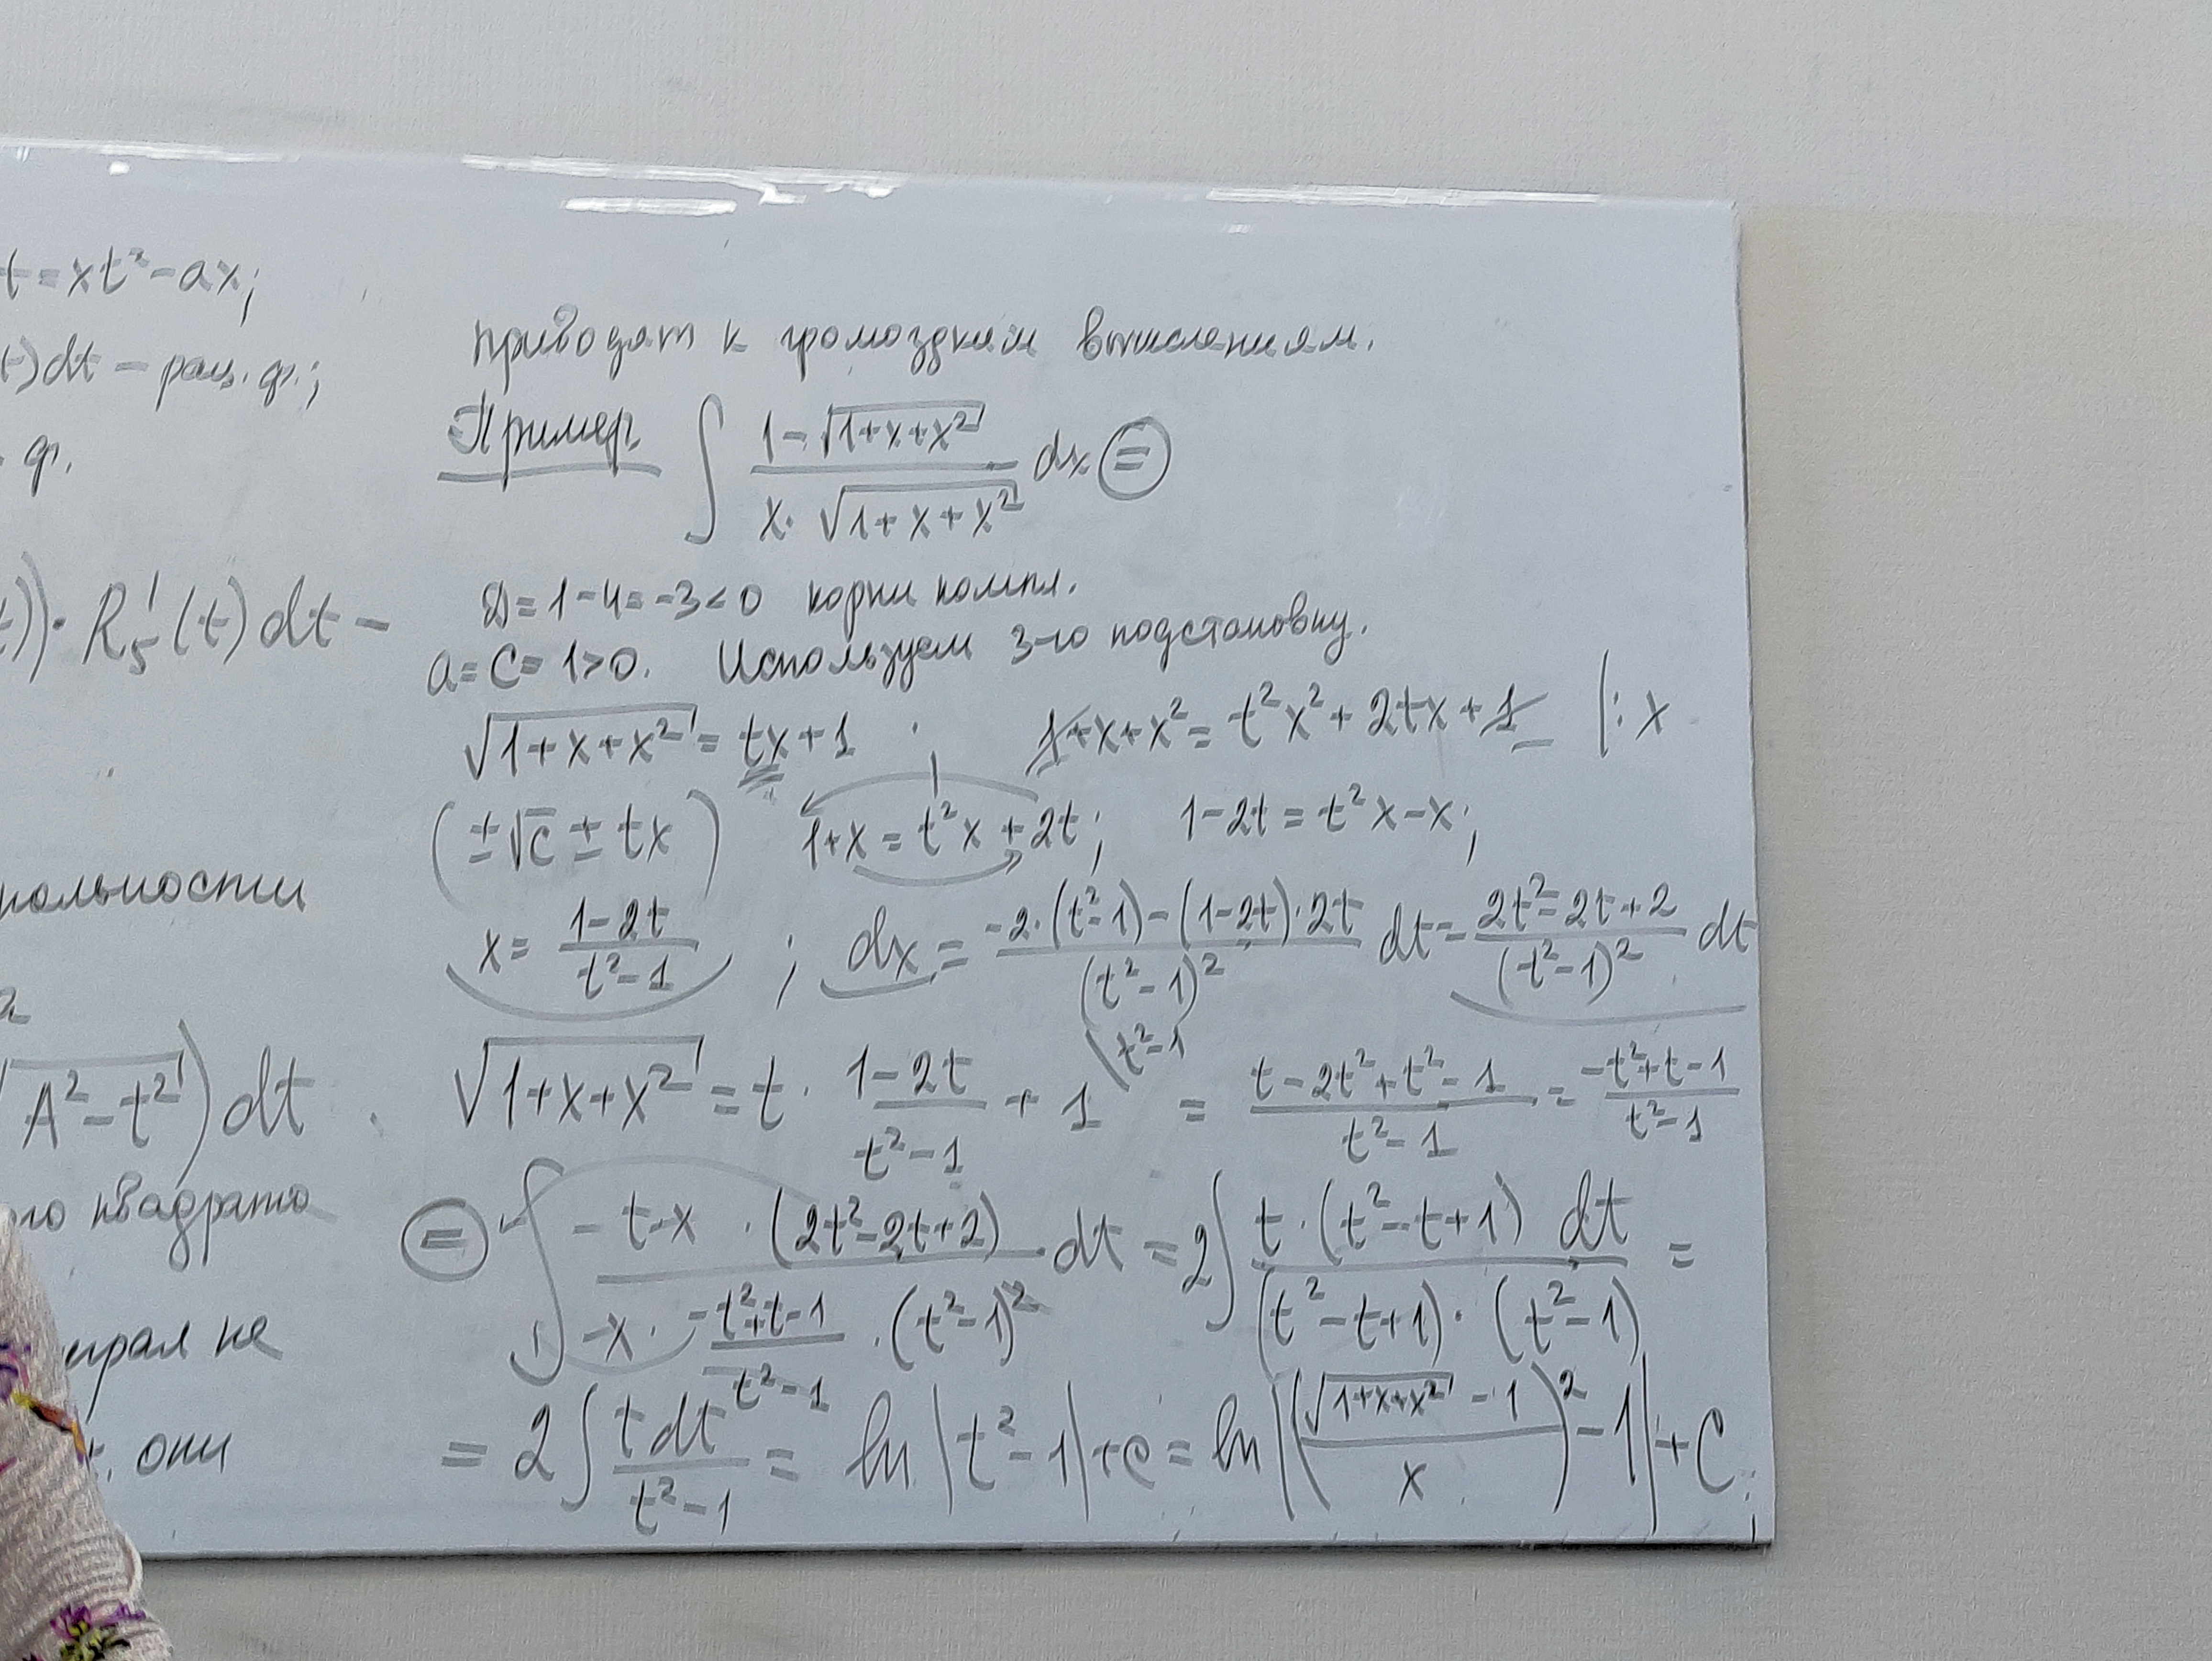 t=xt²-ax;
t)dt - рац. ф.;
ф.
t))·R₅'(t)dt -
a
√A²-t²)dt
квадрата
не
они
приводят к громоздким вычислениям.
Пример ∫ (1-√(1+x+x²))/(x·√(1+x+x²)) dx =
D=1-4=-3<0 корни компл.
a=c=1>0. Используем 3-ю подстановку.
√(1+x+x²) = tx+1 ; 1+x+x²=t²x²+2tx+1 |:x
(±√c ± tx) 1+x=t²x+2t; 1-2t=t²x-x;
x= (1-2t)/(t²-1) ; dx = (-2·(t²-1)-(1-2t)·2t)/(t²-1)² dt= (2t²-2t+2)/(t²-1)² dt
√(1+x+x²) = t· (1-2t)/(t²-1) + 1 (t²-1 = (t-2t²+t²-1)/(t²-1) = (-t²+t-1)/(t²-1)
= ∫ (-t·x·(2t²-2t+2))/(x· (-t²+t-1)/(t²-1) ·(t²-1)²) ·dt = 2∫ (t·(t²-t+1) dt)/((t²-t+1)·(t²-1)) =
= 2∫ (t dt)/(t²-1) = ln|t²-1|+c = ln|((√(1+x+x²) -1)/x)²-1|+C